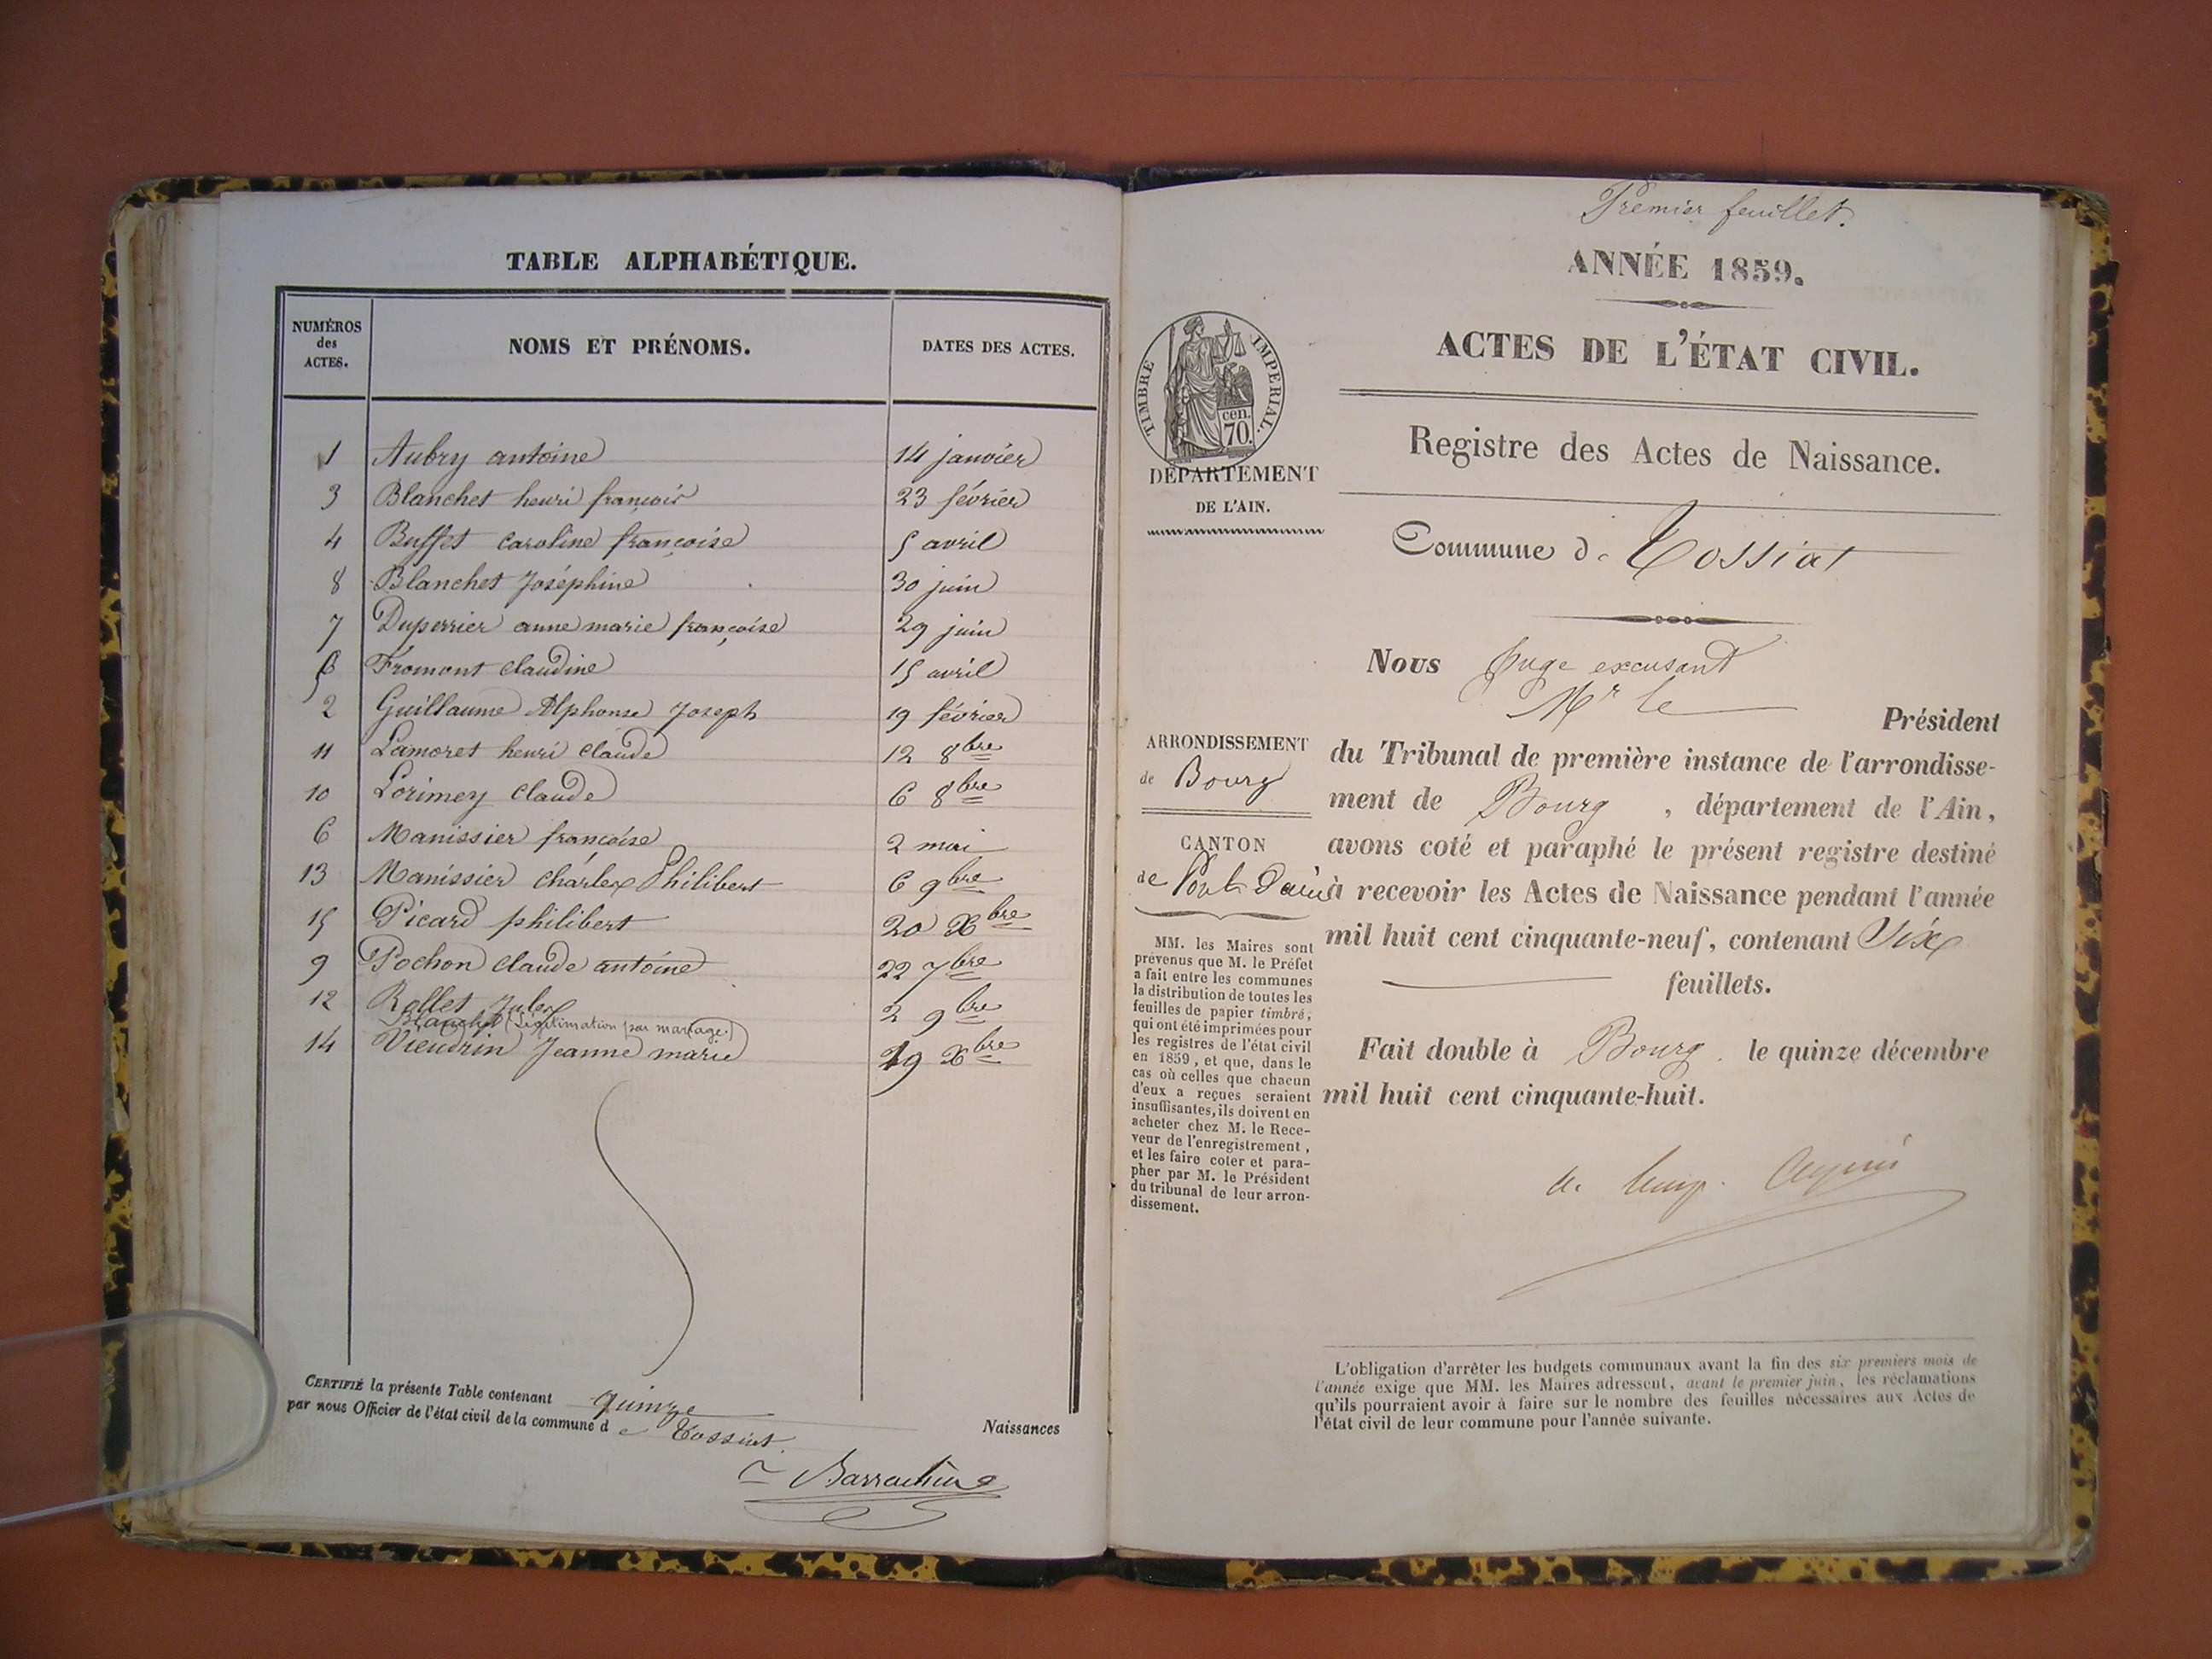 TABLE ALPHABÉTIQUE.
NUMÉROS des ACTES. NOMS ET PRÉNOMS. DATES DES ACTES.
1 Aubry antoine 14 janvier
3 Blanchet henri françois 23 février
4 Buffet caroline françoise 5 avril
8 Blanchet Joséphine 30 juin
7 Duperrier anne marie françoise 29 juin
5 Fromont Claudine 15 avril
2 Guillaume Alphonse Joseph 19 février
11 Lamoret henri claude 12 8bre
10 Lorimey Claude 6 8bre
6 Manissier françoise 2 mai
13 Manissier charles Philibert 6 9bre
15 Picard philibert 20 Xbre
9 Pochon claude antoine 22 7bre
12 Rollet Jules 2 9bre
Blanchet (Légitimation par mariage.)
14 Vieudrin Jeanne marie 19 Xbre
CERTIFIÉ la présente Table contenant quinze Naissances
par nous Officier de l'état civil de la commune d e Tossiat.
Premier feuillet.
ANNÉE 1859.
ACTES DE L'ÉTAT CIVIL.
TIMBRE IMPERIAL.
cen.
70.
DÉPARTEMENT
DE L'AIN.
Registre des Actes de Naissance.
Commune de Tossiat
Nous Juge excusant
Mr le
Président
ARRONDISSEMENT
de Bourg
CANTON
de Pont d'ain
du Tribunal de première instance de l'arrondisse-
ment de Bourg, département de l'Ain,
avons coté et paraphé le présent registre destiné
à recevoir les Actes de Naissance pendant l'année
mil huit cent cinquante-neuf, contenant Six
feuillets.
MM. les Maires sont
prévenus que M. le Préfet
a fait entre les communes
la distribution de toutes les
feuilles de papier timbré,
qui ont été imprimées pour
les registres de l'état civil
en 1859, et que, dans le
cas où celles que chacun
d'eux a reçues seraient
insuffisantes, ils doivent en
acheter chez M. le Rece-
veur de l'enregistrement,
et les faire coter et para-
pher par M. le Président
du tribunal de leur arron-
dissement.
Fait double à Bourg. le quinze décembre
mil huit cent cinquante-huit.
L'obligation d'arrêter les budgets communaux avant la fin des six premiers mois de
l'année exige que MM. les Maires adressent, avant le premier juin, les réclamations
qu'ils pourraient avoir à faire sur le nombre des feuilles nécessaires aux Actes de
l'état civil de leur commune pour l'année suivante.